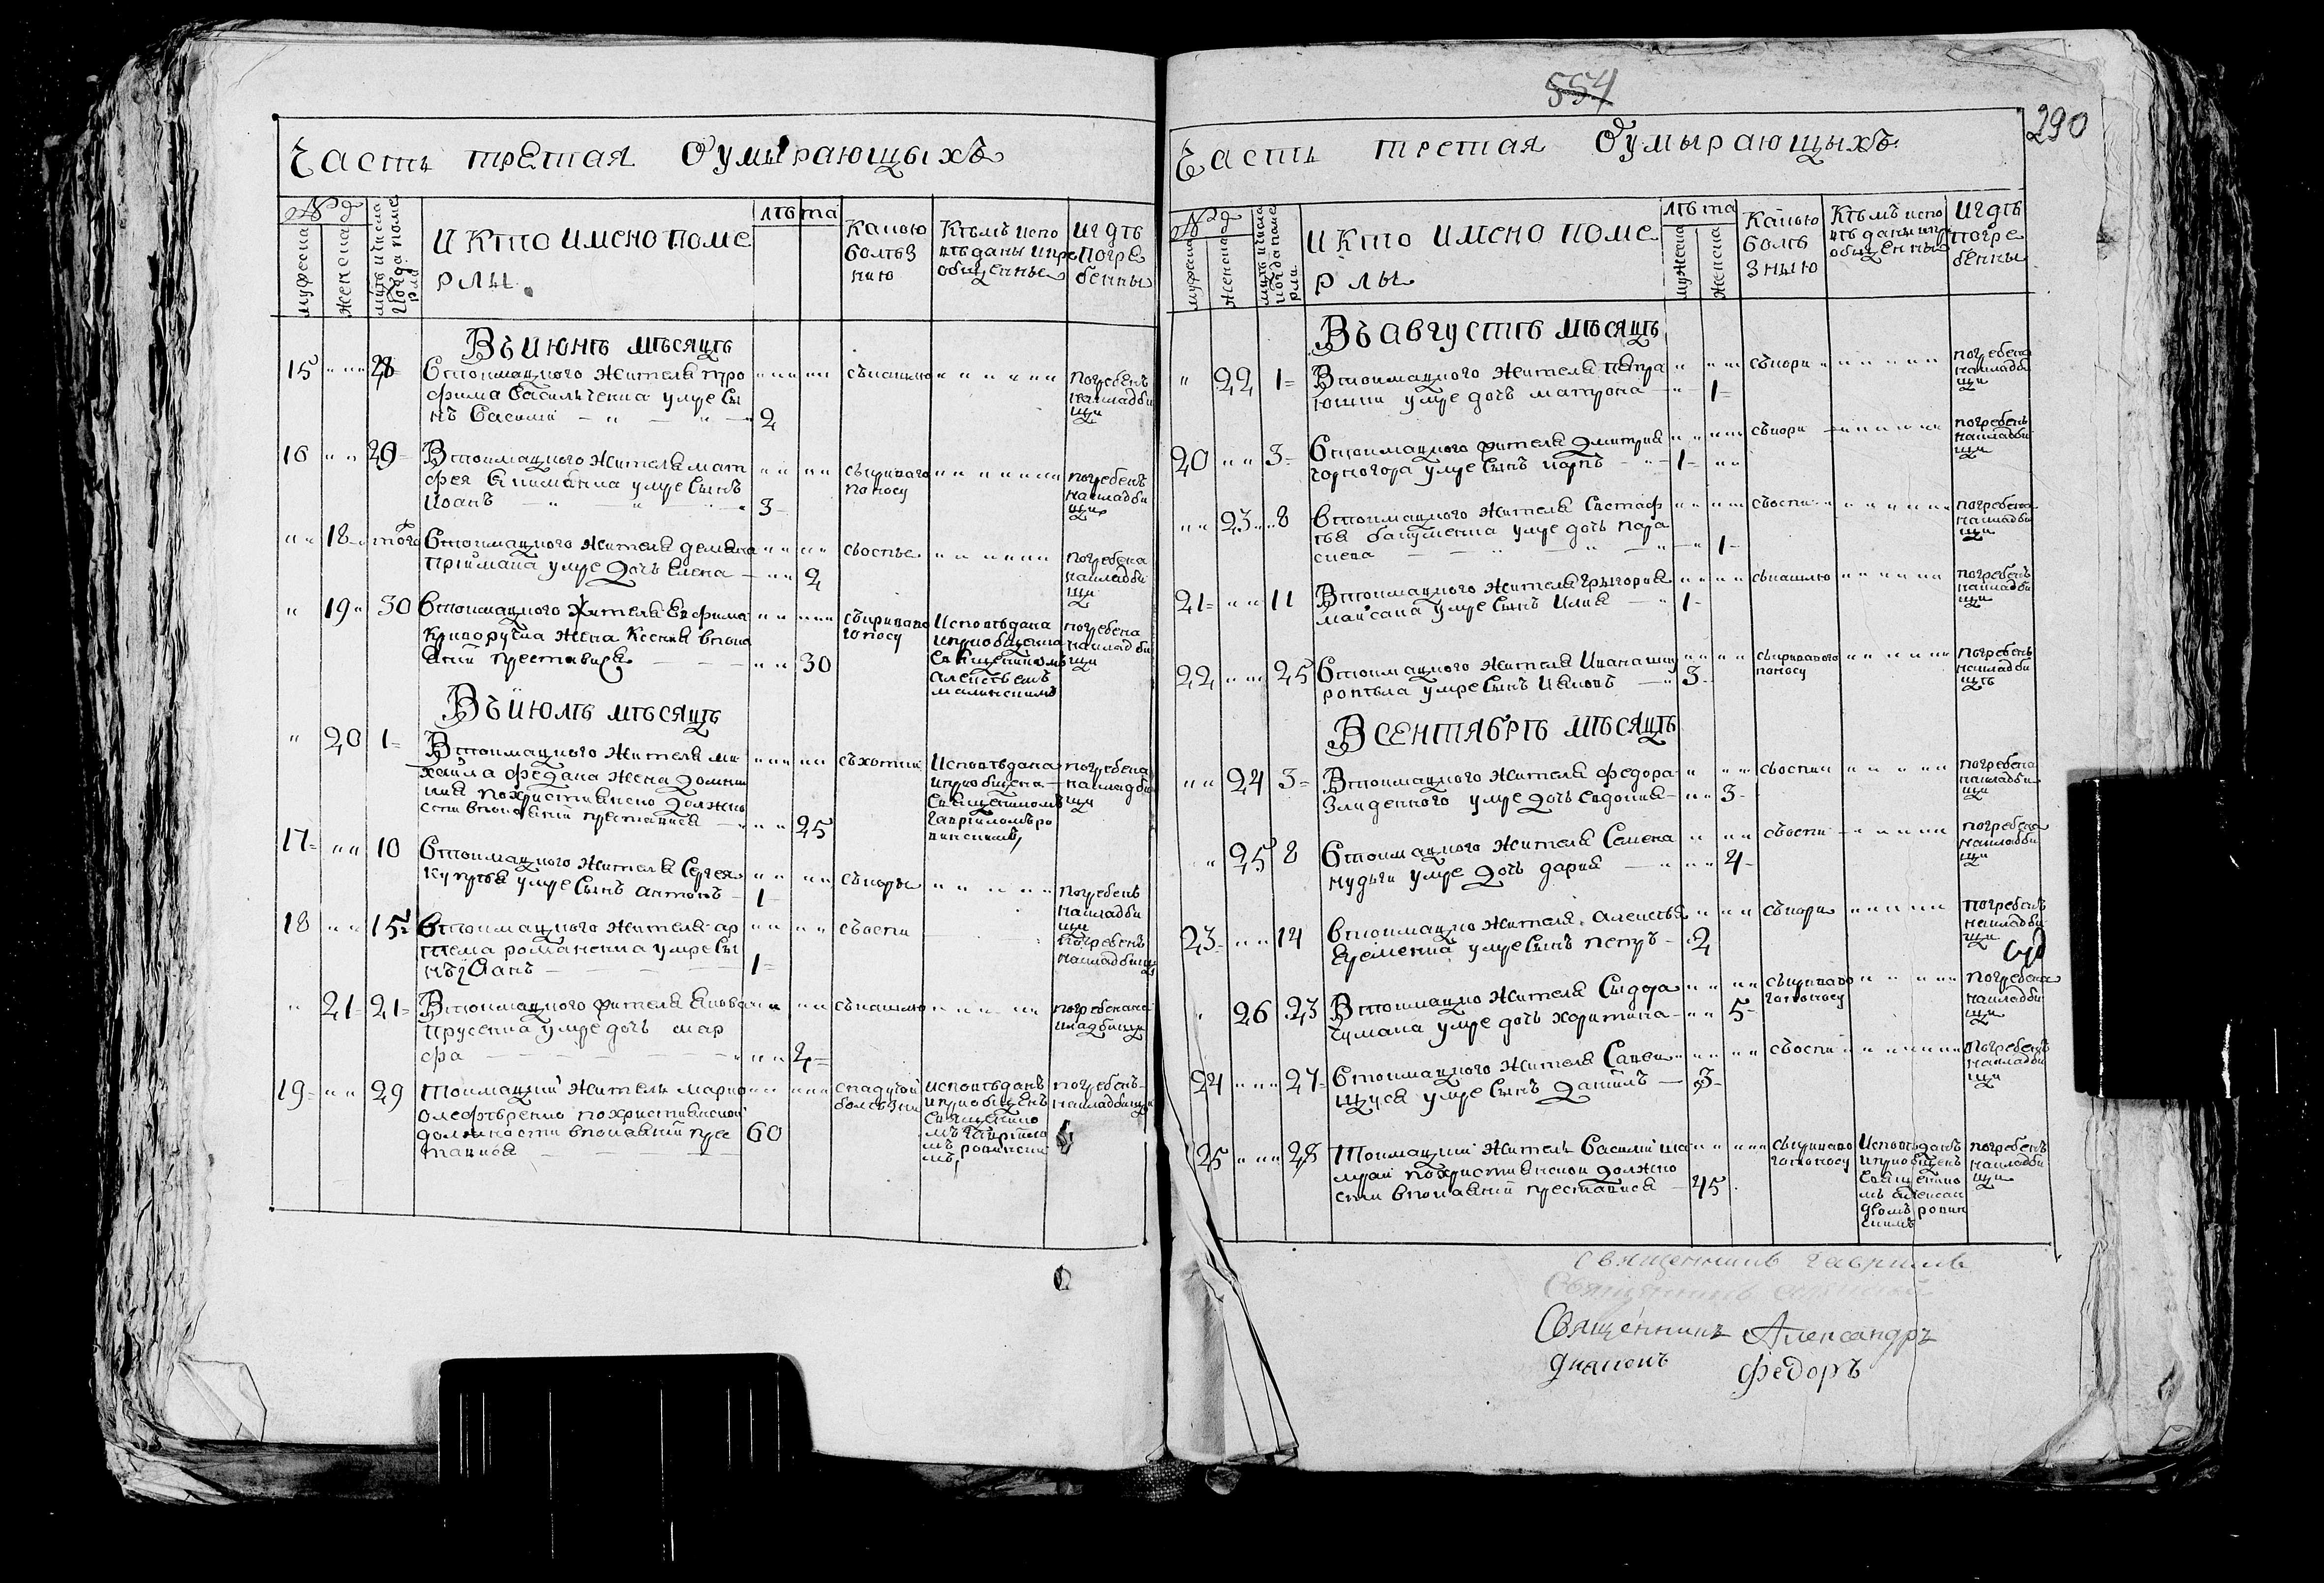 Часть третая Оумирающыхъ
№д
мужеска
женска
мцъ и числа
когда поме
рли
И Кто имено поме
рлы
лѣта
Какою
болѣз
нию
Кѣмъ испо
вѣданы и пре
общенны
И гдѣ
погре
бенны
Въ июнѣ мѣсяцѣ
15 28 Втокмацкого жителя тро
фима Васильченка умре сы
нъ Василий 2
съкашлю
погребенъ
накладби
щи
16 29 Втокмацкого жителя мат
фея Клименка умре сынъ
Иоанъ 3
скривого
поносу
погребенъ
накладби
щи
18 того Втокмацкого жителя демяна
приймака умре дочъ Елена 2
свospы
погребена
накладби
щи
19 30 втокмацкого жителя Ефима
Криворучка жена Ксения впока
янии преставися 30
скриваво
го носу
Исповѣдана
и приобщена
Священикомъ
Алексѣемъ
погребена
накладби
щи
Въ июлѣ мѣсяцѣ
20 1 Втокмацкого жителя ми
хайла федана жена домни
кия похристиянско должно
сти впокаянии преставися 25
съхотки
Исповѣдана
и приобщена
Священикомъ
Гаврииломъ ро
винскимъ
погребена
накладби
щи
17 10 Втокмацкого жителя Сергея
умре сынъ антонъ 1
съкоры
погребенъ
накладби
щи
18 15 втокмацкого жителя ар
тема романенка умре сы
нъ Иоанъ 1
съоспи
погребенъ
накладбищи
21 21 Втокмацкого жителя Якова
Прусенка умре дочъ мар
фа 4
съкашлю
погребена на
кладбищи
19 29 Токмацкий житель марко
олефѣренко похристиянской
должности впокаянии пре
тавися 60
спадучой
болѣзни
исповѣданъ
и приобщенъ
Священико
мъ Гавриило
мъ ровински
мъ
погребенъ
накладбищи
554
290
Часть третая Оумырающыхъ
№д
мужеска
женска
мцъ и числа
когда поме
рли
И Кто имено поме
рлы
лѣта
мужеска
женска
Какою
болѣ
зныю
Кѣмъ испо
вѣданы и при
общенны
И гдѣ
погре
бенны
Въ августѣ мѣсяцѣ
22 1 Втокмацкого жителя петра
юшки умре дочъ матрона 1
съкори
погребена
накладби
щи
20 3 Втокмацкого жителя Дмитрия
чорногора умре сынъ карпъ 1
съкори
погребенъ
накладби
щи
23 8 Втокмацкого жителя Евстаф
ѣя умре дочъ пара
скева 1
съоспи
погребена
накладби
щи
21 11 Втокмацкого жителя григория
умре сынъ Илия 1
съкашлю
погребенъ
накладби
щи
22 25 Втокмацкого жителя Ивана ши
ропѣла умре сынъ Иаковъ 3
съкривавого
поносу
погребенъ
накладби
щѣ
В сентябрѣ мѣсяцѣ
24 3 Втокмацкого жителя федора
Злиденного умре дочъ Евдокия 3
съоспи
погребена
накладби
щи
25 8 Втокмацкого жителя Семена
нудыги умре дочъ дария 4
съоспи
погребена
накладби
щи
23 14 Втокмацко жителя Алексѣя
Еременка умре сынъ петръ 2
съкори
погребенъ
накладби
щи
26 23 Втокмацко жителя Сидора
чумака умре дочъ харитина 5
съкриваво
го поносу
погребена
накладби
щи
24 27 Втокмацкого жителя Савы
умре сынъ Данилъ 3
съоспи
погребенъ
накладби
щи
25 28 Токмацкий житель Василий ша
мрай похристиянской должно
сти впокаянии преставися 45
съкриваво
го поносу
Исповѣданъ
и приобщенъ
Священико
мъ Алексан
дромъ ровин
скимъ
погребенъ
накладби
щи
Священникъ Гавриилъ
Священникъ Алексей
Священникъ Александръ
Диаконъ Федоръ